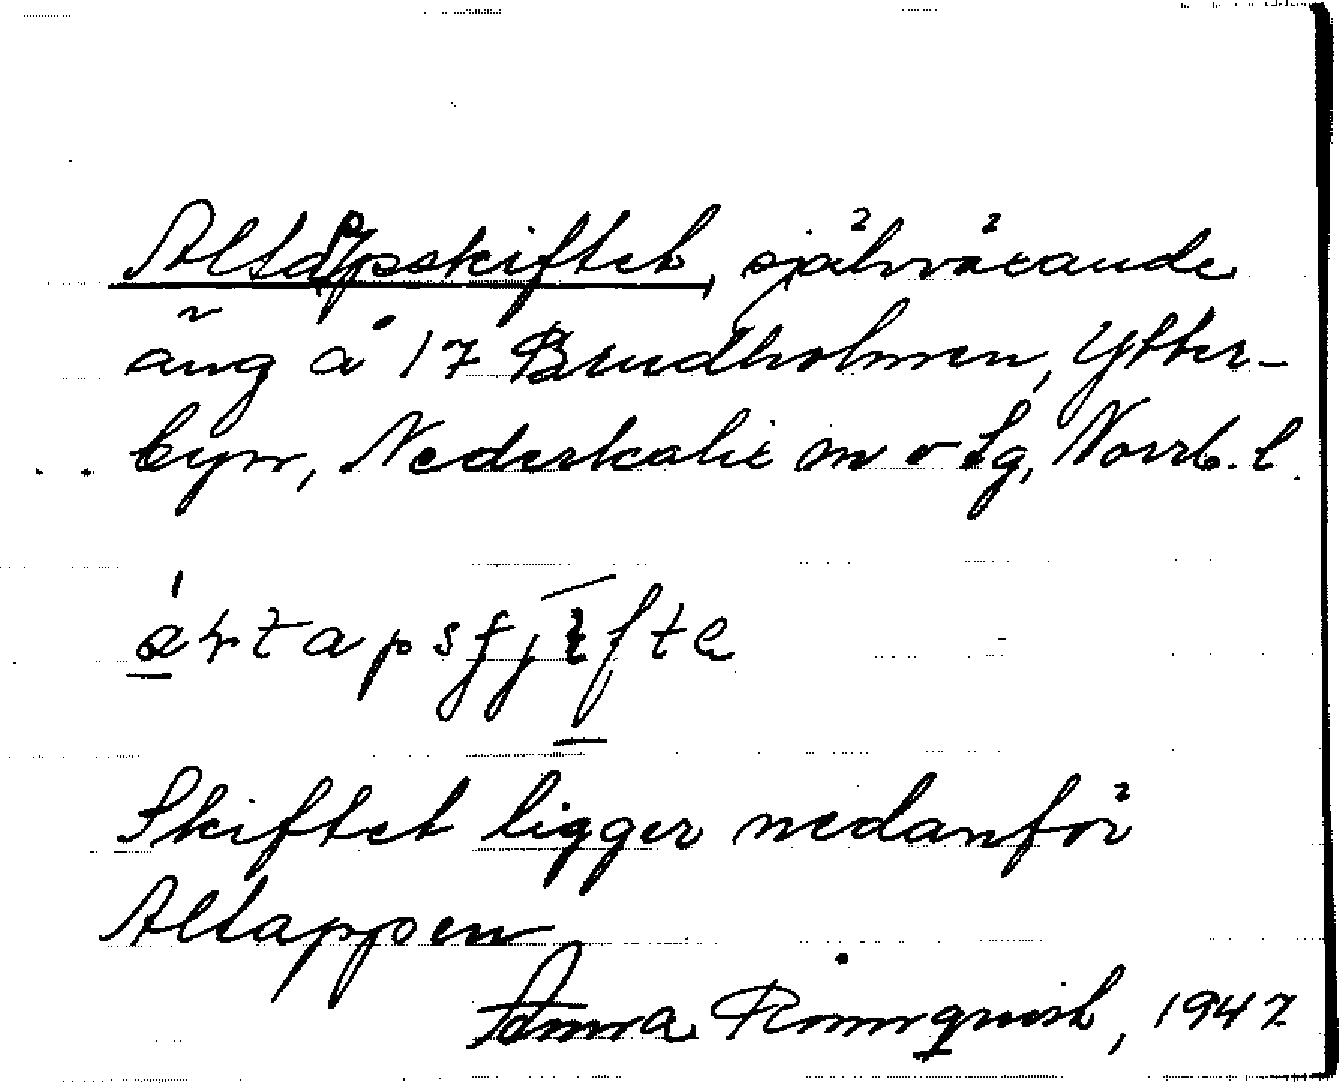 Altappskiftet, självvärande
äng å 17 Brudholmen, Ytter-
byn, Nederkalix sn o Sg, Norrb. l.
Skiftet ligger nedanför
Altappen
Anna Rönnquist, 1947